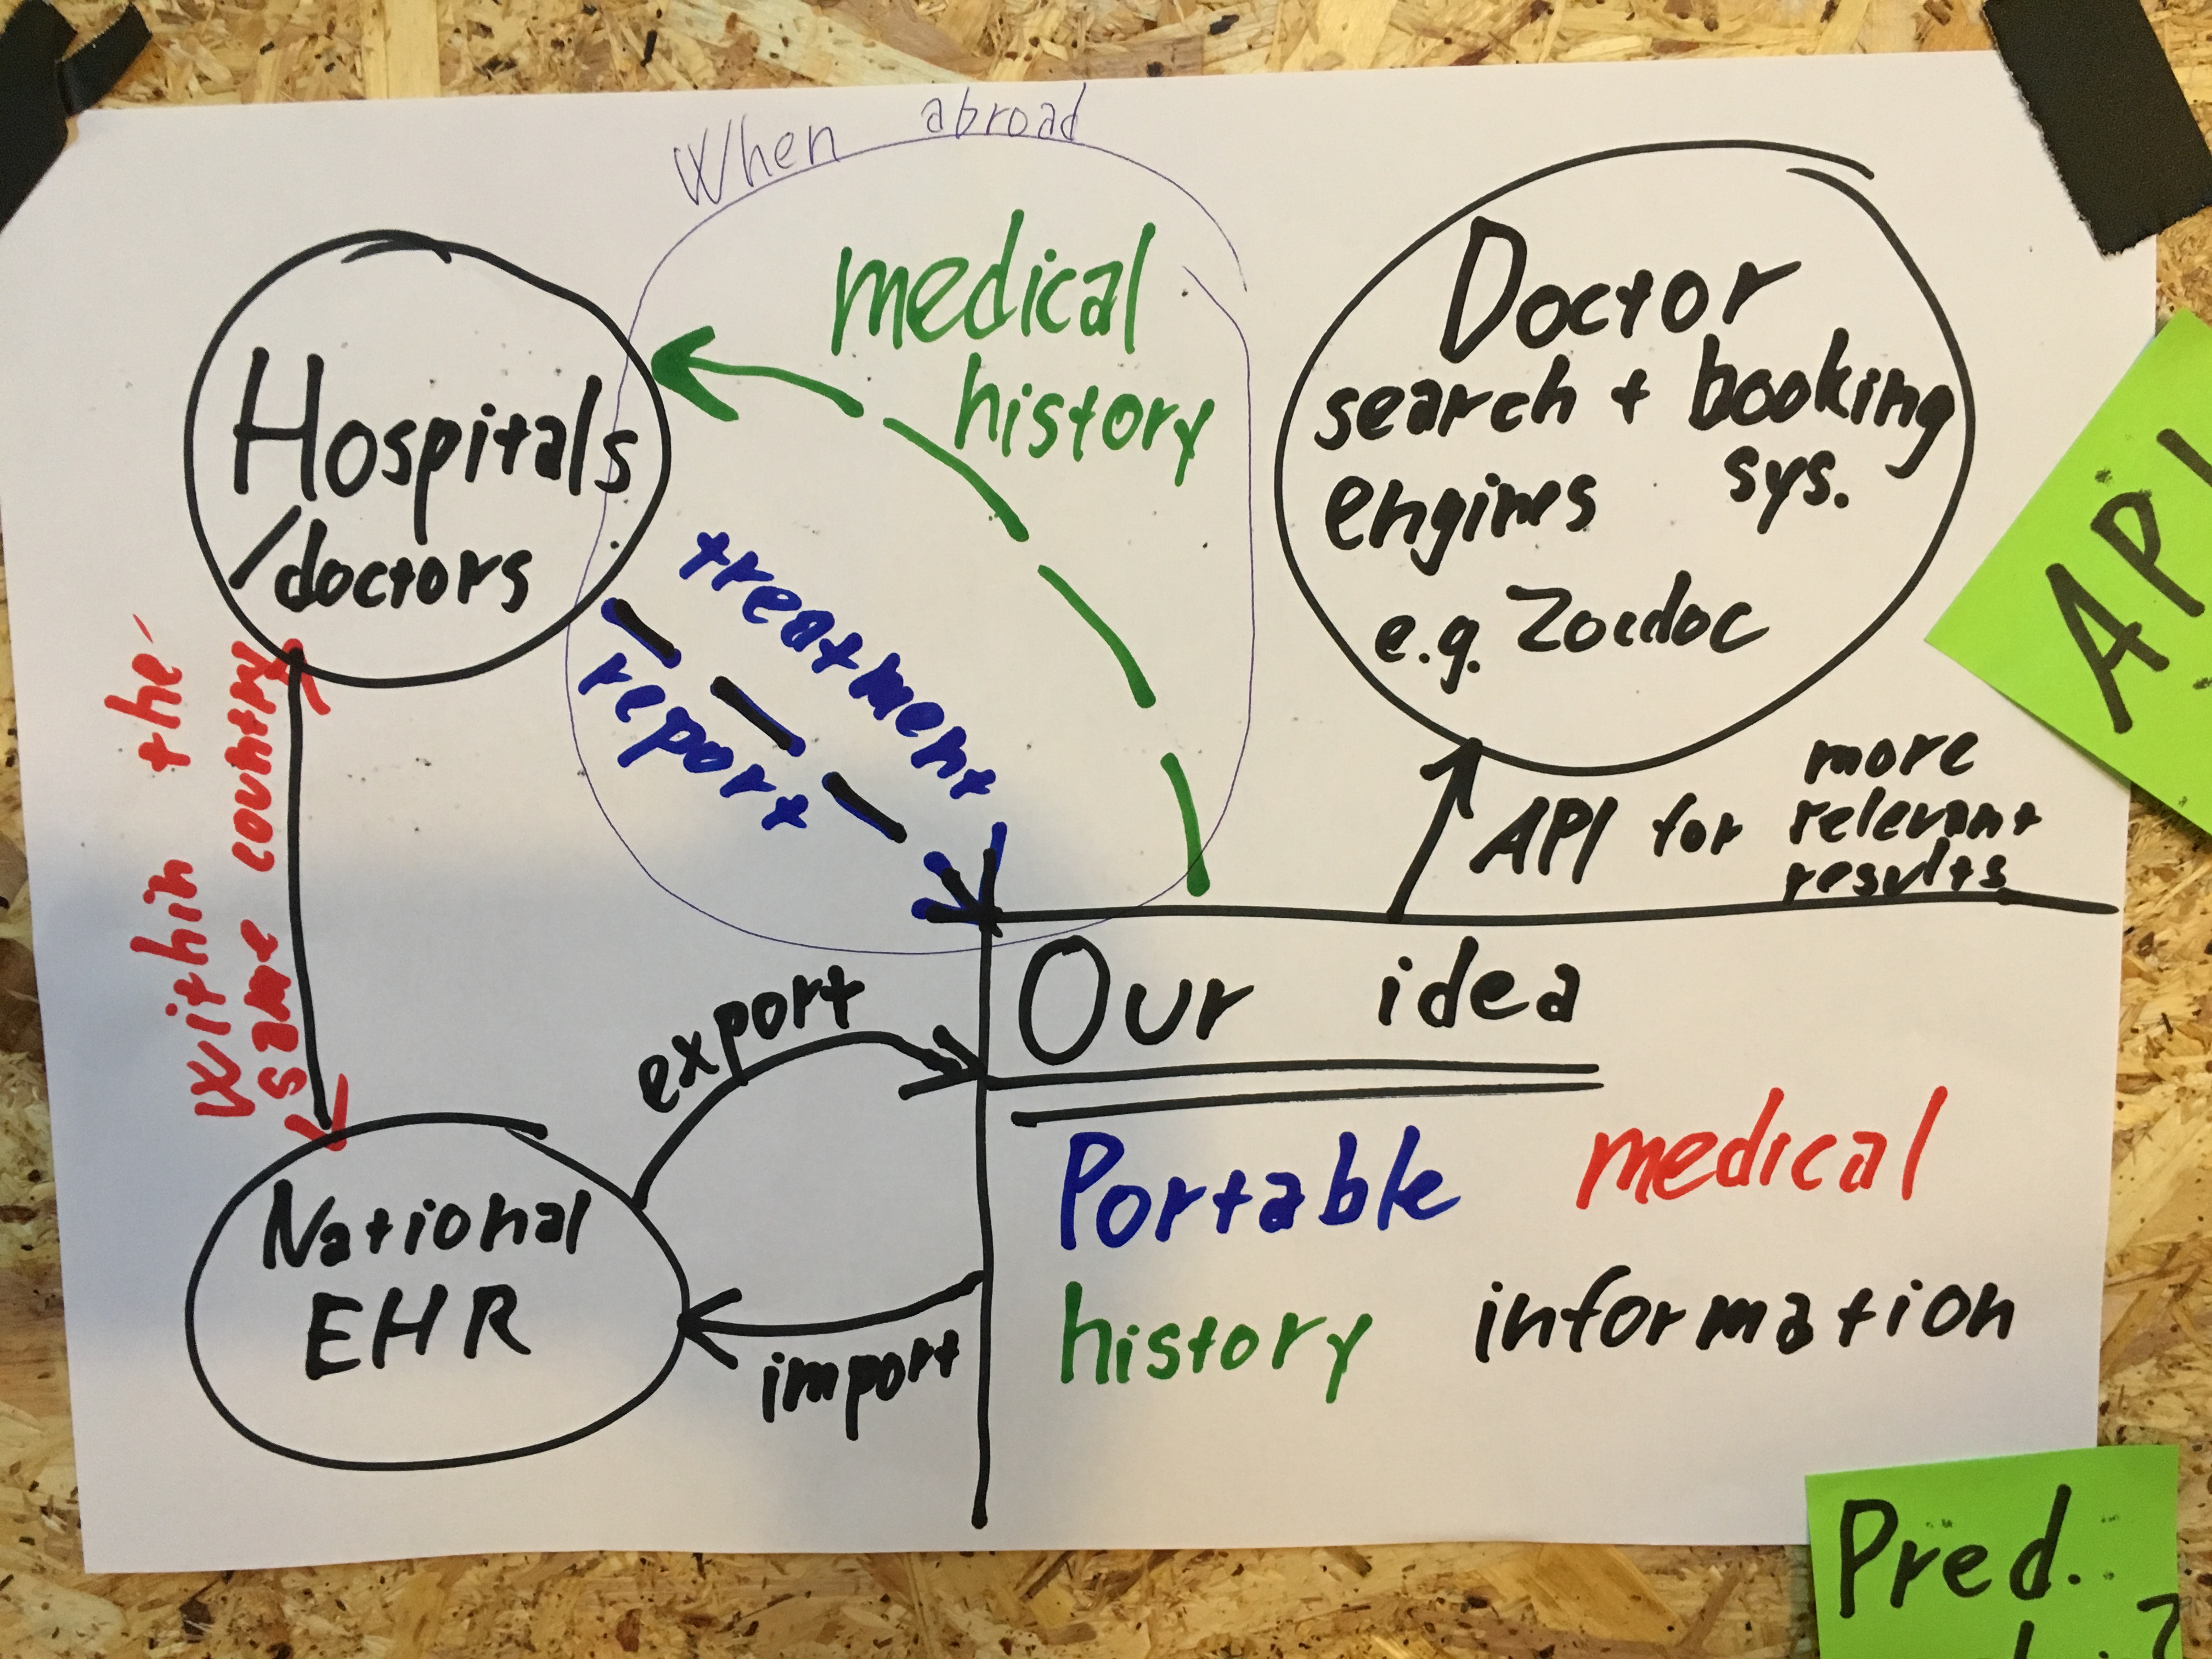 When abroad
medical
history
Hospitals
/doctors
treatment
report
Doctor
search + booking
engines sys.
e.g. Zocdoc
API for more
relevant
results
API
within the
same country
export
import
National
EHR
Our idea
Portable medical
history information
Pred.